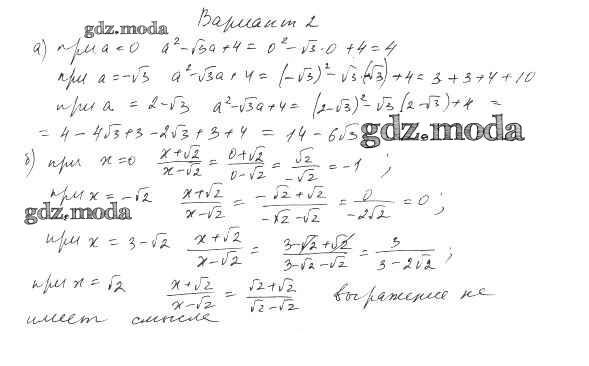 Вариант 2
gdz.moda
а) при a=0 a²-√3a+4 = 0²-√3·0+4=4
при a=-√3 a²-√3a+4 = (-√3)²-√3·(-√3)+4 = 3+3+4+10
при a = 2-√3 a²-√3a+4 = (2-√3)²-√3(2-√3)+4 =
= 4-4√3+3-2√3+3+4 = 14-6√3
gdz.moda
б) при x=0 (x+√2)/(x-√2) = (0+√2)/(0-√2) = √2/(-√2) = -1 ;
при x=-√2 (x+√2)/(x-√2) = (-√2+√2)/(-√2-√2) = 0/(-2√2) = 0 ;
gdz.moda
при x = 3-√2 (x+√2)/(x-√2) = (3-√2+√2)/(3-√2-√2) = 3/(3-2√2) ;
при x=√2 (x+√2)/(x-√2) = (√2+√2)/(√2-√2) выражение не
имеет смысла